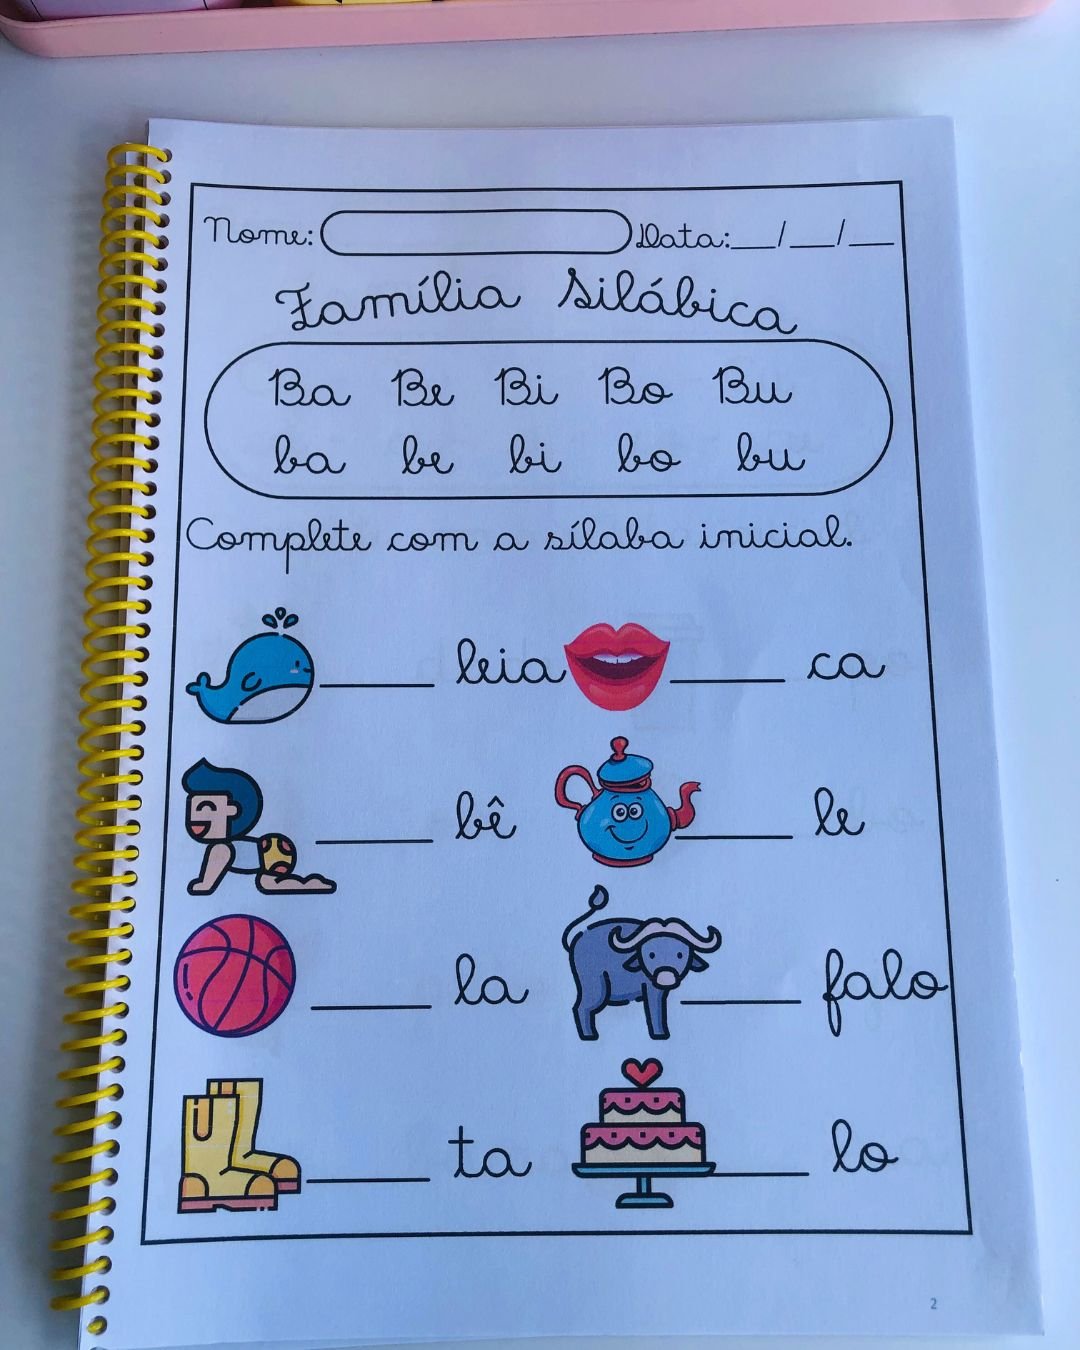 Nome: Data:__/__/__
Família Silábica
Ba Be Bi Bo Bu
ba be bi bo bu
Complete com a sílaba inicial.
____ leia ____ ca
____ bê ____ le
____ la ____ falo
____ ta ____ lo
2